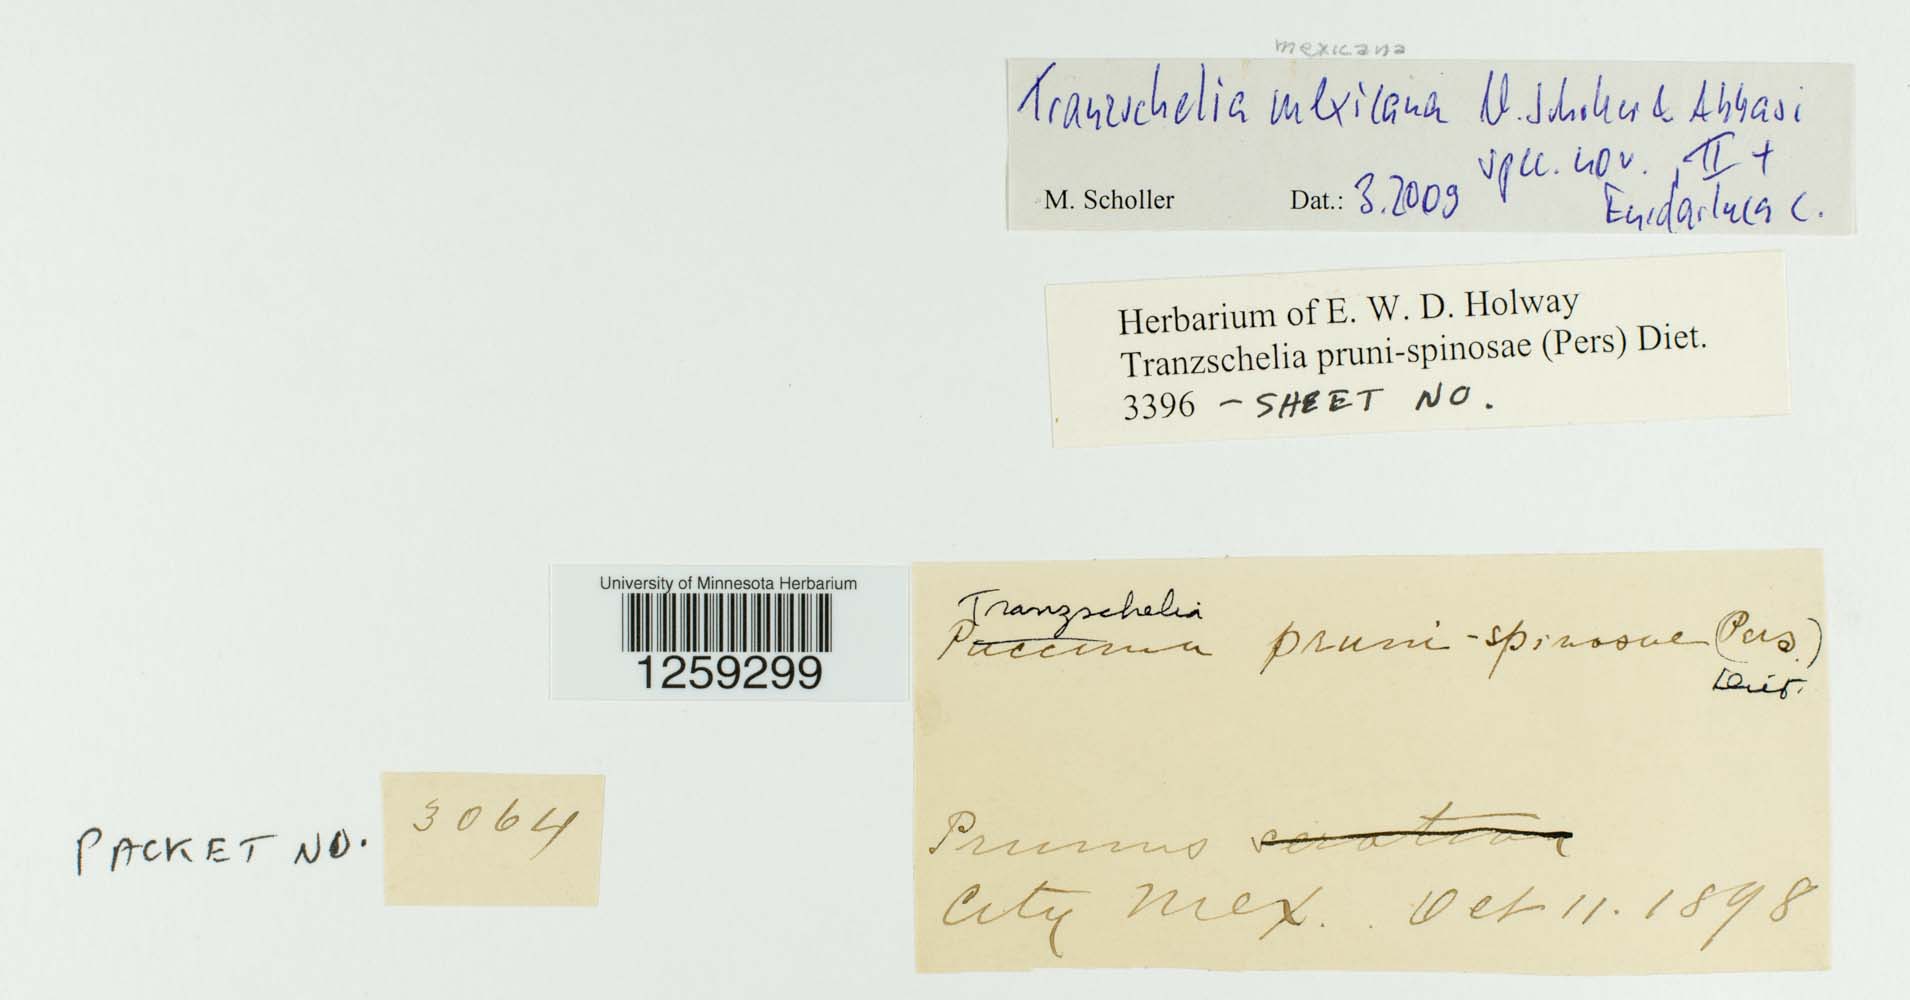 mexicana
Tranzschelia mexicana M. Scholler & Abbasi
spec. nov., II +
M. Scholler Dat.: 3.2009
Eudarluca c.
Herbarium of E. W. D. Holway
Tranzschelia pruni-spinosae (Pers) Diet.
3396 - SHEET NO.
University of Minnesota Herbarium
1259299
Tranzschelia
Puccinia pruni-spinosae (Pers.)
Diet.
PACKET NO. 3064
Prunus serotina
City Mex. Oct 11. 1898